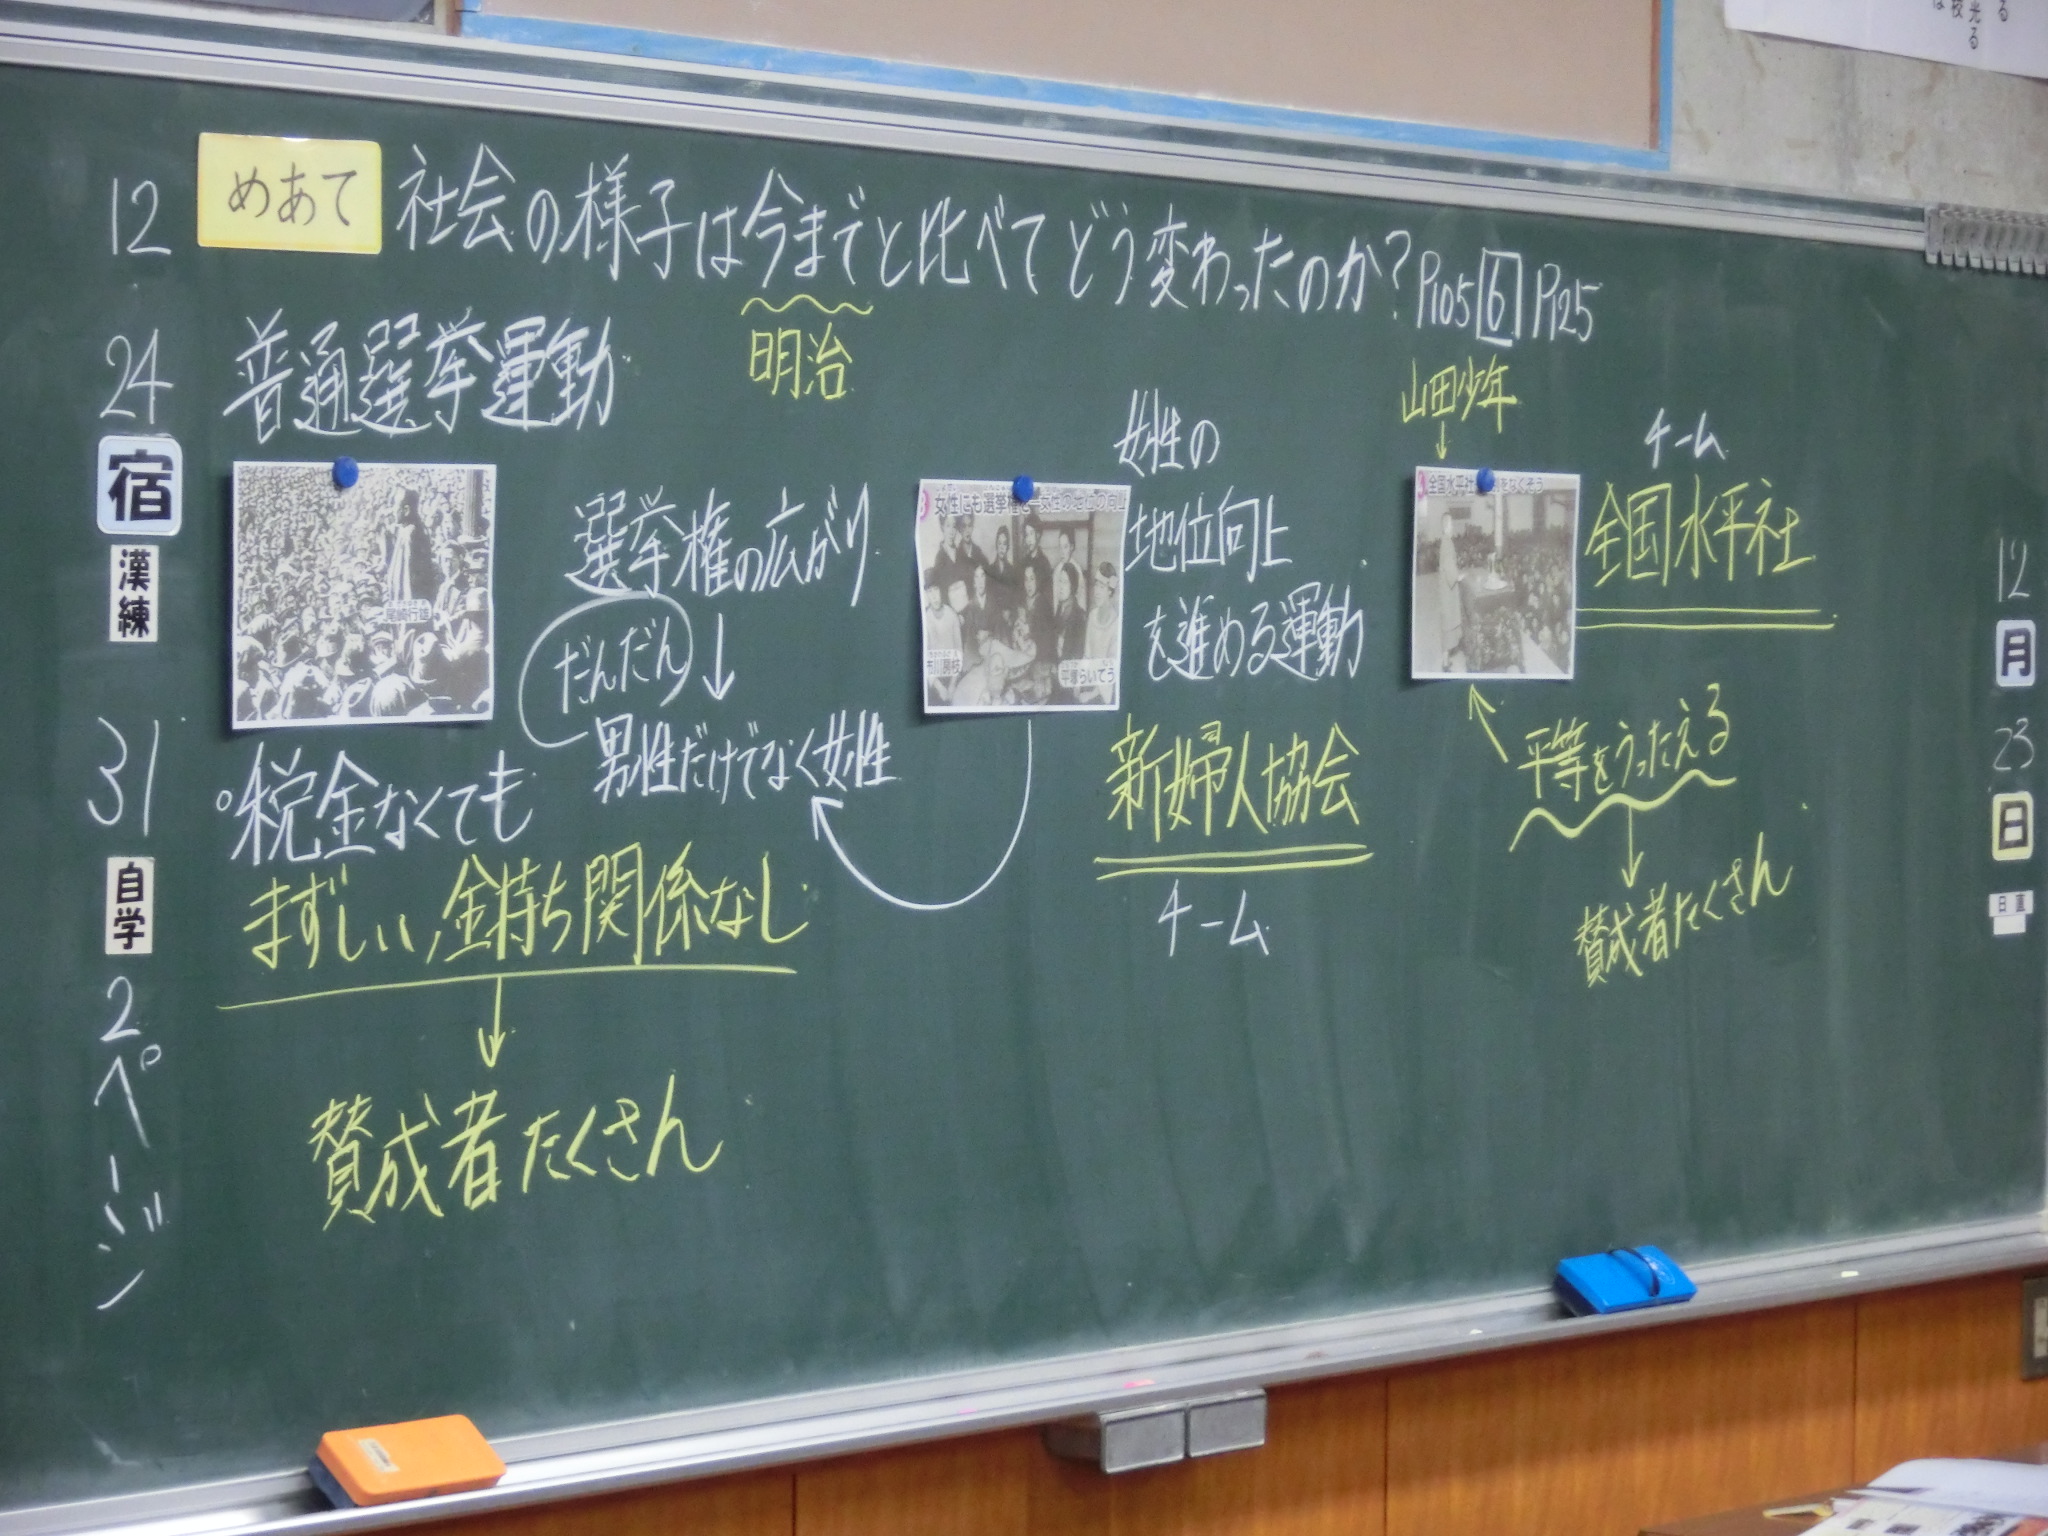 めあて 社会の様子は今までと比べてどう変わったのか? P105 6 P125
明治
普通選挙運動
尾崎行雄
税金なくても
まずしい,金持ち関係なし
賛成者たくさん
選挙権の広がり
だんだん
男性だけでなく女性
女性にも選挙権を―女性の地位の向上
市川房枝
平塚らいてう
女性の
地位向上
を進める運動
新婦人協会
チーム
山田少年
全国水平社
をなくそう
チーム
全国水平社
平等をうったえる
賛成者たくさん
12
24
宿
漢練
31
自学
2ページ
12
月
23
日
日直